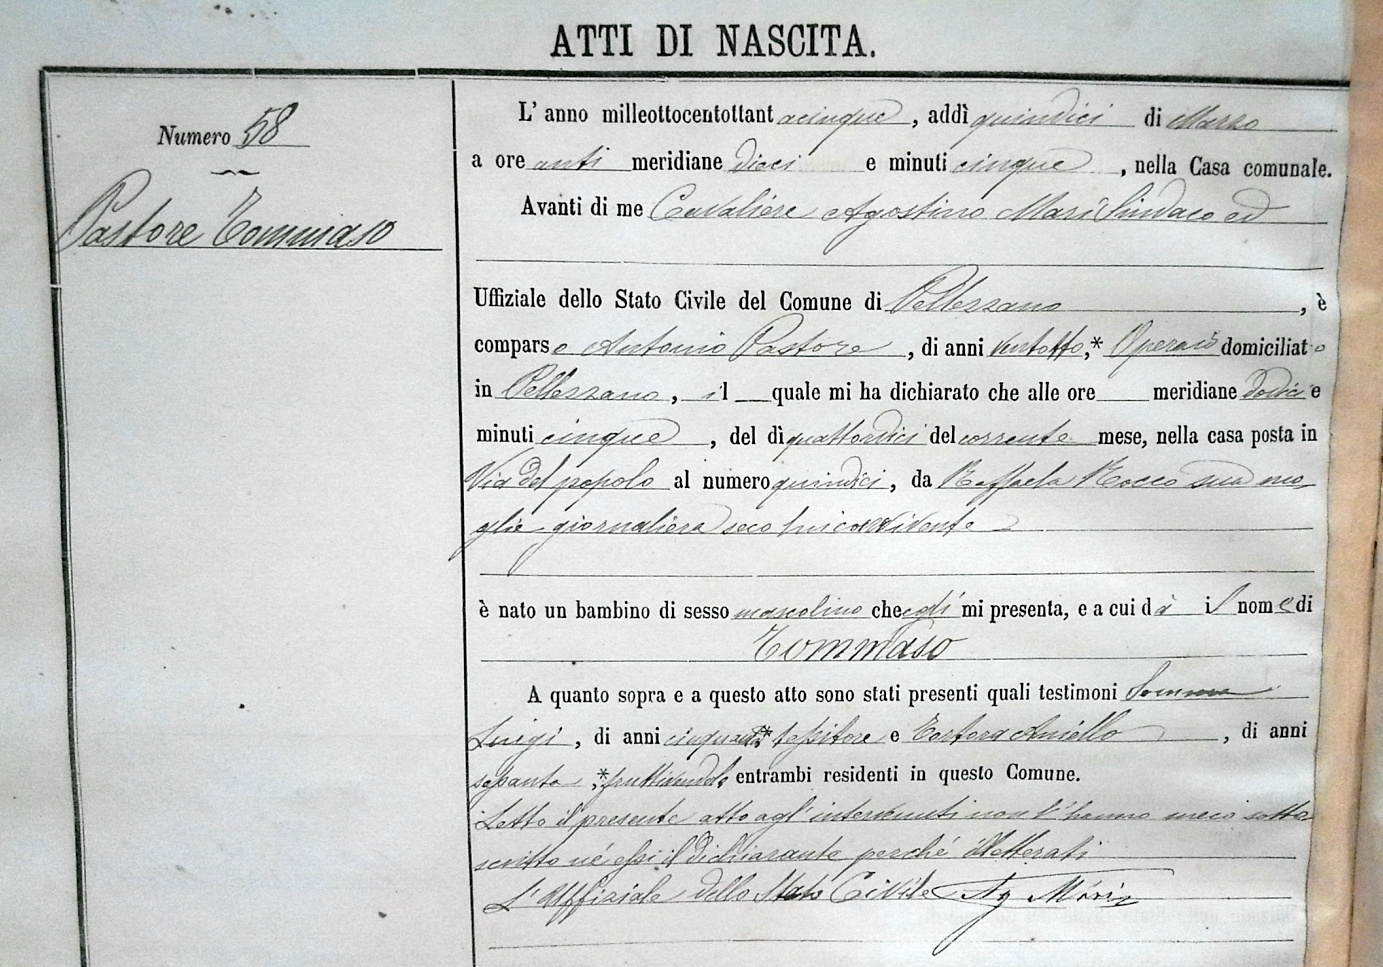 ATTI DI NASCITA.
Numero 58
Pastore Tommaso
L' anno milleottocentottantacinque, addì quindici di Marzo
a ore anti meridiane dieci e minuti cinque, nella Casa comunale.
Avanti di me Cavaliere Agostino Mari Sindaco ed
Uffiziale dello Stato Civile del Comune di Pellezzano, è
comparso Antonio Pastore, di anni ventotto,* Operaio domiciliato
in Pellezzano, il quale mi ha dichiarato che alle ore meridiane dodici e
minuti cinque, del dì quattordici del corrente mese, nella casa posta in
Via del popolo al numero quindici, da Raffaela Rocco sua mo
glie giornaliera seco lui convivente
è nato un bambino di sesso mascolino che egli mi presenta, e a cui dà il nome di
Tommaso
A quanto sopra e a questo atto sono stati presenti quali testimoni
Luigi, di anni * tessitore e Tortora Aniello, di anni
*fruttivendolo, entrambi residenti in questo Comune.
Letto il presente atto agl' intervenuti non l' hanno meco sotto
scritto né essi il dichiarante perché illetterati
L' Uffiziale dello Stato Civile Ag